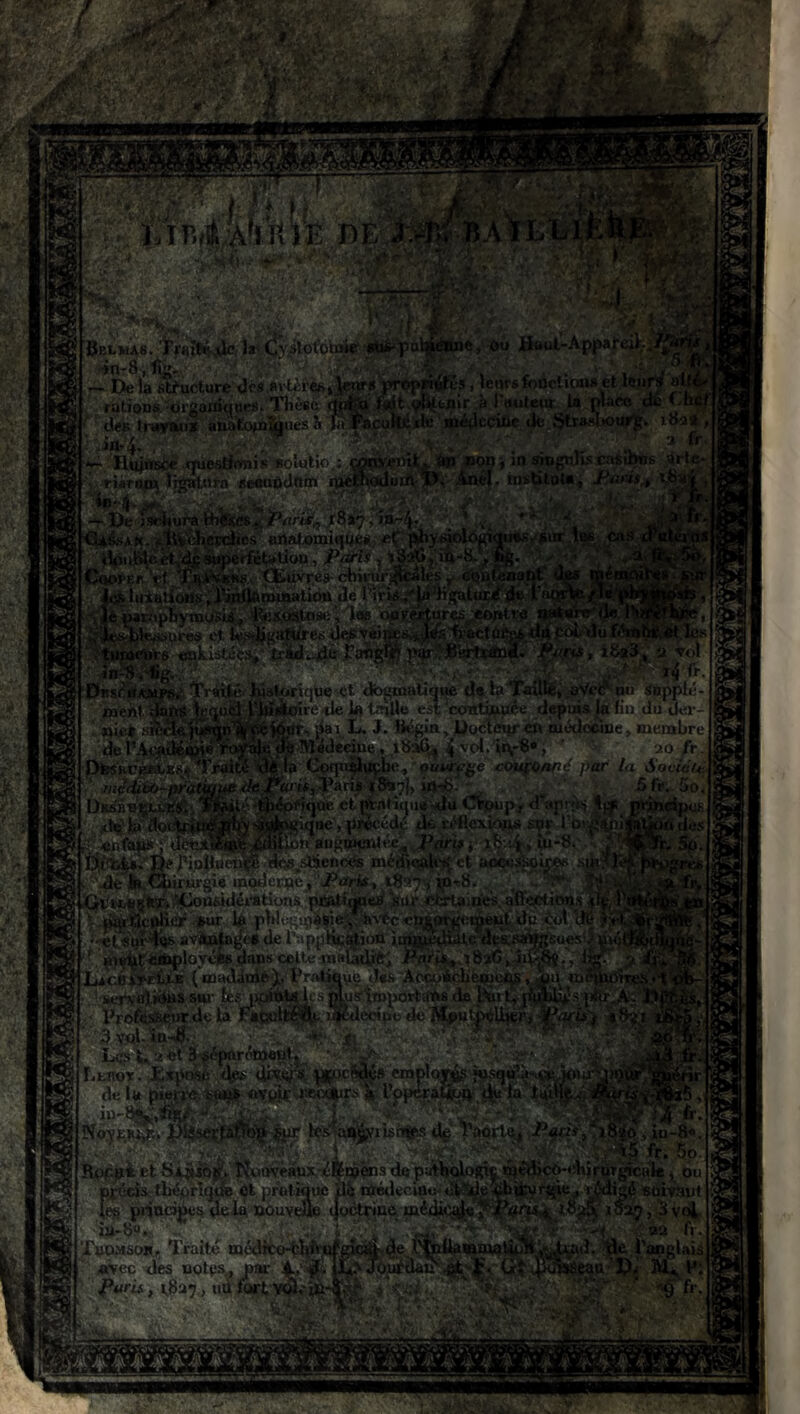 LIBRAIRIE DE J.-B. BAILLIÈRE.
BELMAS. Traité de la Cystotomie sus-pubienne, ou Haut-Appareil. Paris,
in-8, fig. 5 fr.
— De la structure des artères, leurs propriétés, leurs fonctions et leurs alté-
rations organiques. Thèse qui a fait obtenir à l'auteur la place de Chef
des travaux anatomiques à la Faculté de médecine de Strasbourg. 1822,
in-4. 2 fr.
— Hujusce questionis solutio : convenit, an non, in singulis casibus arte-
riarum ligatura secundum methodum D. Anel. instituta, Paris,
in-4.
— De Paris, 1827, in-4.
CASSAN. Recherches anatomiques et physiologiques sur les cas d'uterus
double et de superfétation, Paris, 1826, in-8., fig. 2 fr. 50.
COOPER et TRAVERS. Œuvres chirurgicales, contenant des mémoires sur
les luxations, l'inflammation de l'iris, la ligature de l'aorte, le phymosis,
le paraphymosis, l'exostose, les ouvertures contre nature de l'urèthre,
les blessures et les ligatures des veines, les fractures du col du fémur et les
tumeurs enkistées, trad. de l'anglais par Bertrand. Paris, 1823, 2 vol
in-8, fig. 14 fr.
DESCHAMPS. Traité historique et dogmatique de la Taille, avec un supplé-
ment dans lequel l'histoire de la taille est continuée depuis la fin du der-
nier siècle jusqu'à ce jour, par L. J. Bégin, Docteur en médecine, membre
de l'Académie royale de Médecine, 1826, 4 vol. in-8°, 20 fr.
Traité de la Coqueluche, ouvrage couronné par la Société
médico-pratique de Paris, Paris 1827, in-8. 5 fr. 50.
Traité théorique et pratique du Croup, d'après les principes
de la doctrine physiologique, précédé de réflexions sur l'organisation des
enfans; deuxième édition augmentée, Paris, 1824, in-8. fr. 50.
De l'influence des sciences médicales et accessoires sur les progrès
de la Chirurgie moderne, Paris, 1827, in-8. fr.
Considérations pratiques sur certaines affections de l'utérus, en
particulier sur la phlegmasie avec engorgement du col de cet organe,
et sur les avantages de l'application immédiate des sangsues méthodique-
ment employées dans cette maladie, Paris, 1826, in-8., fig. 2 fr.
LACHAPELLE (madame), Pratique des Accouchemens, ou mémoires et ob-
servations sur les points les plus importans de l'art, publiés par A. Dugès,
Professeur de la Faculté de médecine de Montpellier, Paris, 1821 1825,
3 vol. in-8.
Les t. 2 et 3 séparément, fr.
LEROY. Exposé des divers procédés employés jusqu'à ce jour pour guérir
de la pierre sans avoir recours à l'opération de la taille, Paris, 1825,
in-8, fig. 4 fr.
Dissertation sur les anévrismes de l'aorte, Paris, 1820, in-8°.
fr. 50.
ROCHE et SANSON. Nouveaux élémens de pathologie médico-chirurgicale, ou
précis théorique et pratique de médecine et de chirurgie, rédigé suivant
les principes de la nouvelle doctrine médicale, Paris, 1825 1827, 3 vol.
in-8°. 22 fr.
THOMSON. Traité médico-chirurgical de l'Inflammation, trad. de l'anglais
avec des notes, par A. J. L. Jourdan et F. G. Boisseau D. M. P.
Paris, 1827, un fort vol. in-8. 9 fr.